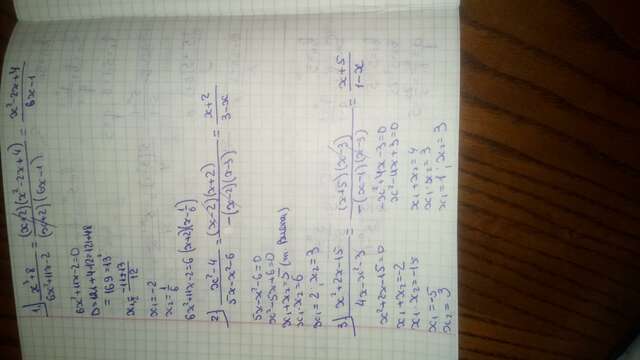 1) (x³+8)/(6x²+11x-2) = ((x+2)(x²-2x+4))/((x+2)(6x-1)) = (x²-2x+4)/(6x-1)
6x²+11x-2=0
D=121+4·12=121+48
=169=13²
x₁,₂ = (-11±13)/12
x₁=-2
x₂=1/6
6x²+11x-2=6(x+2)(x-1/6)
2) (x²-4)/(5x-x²-6) = ((x-2)(x+2))/(-(x-2)(x-3)) = (x+2)/(3-x)
5x-x²-6=0
x²-5x+6=0
x₁+x₂=5 (т. Виета)
x₁·x₂=6
x₁=2 x₂=3
3) (x²+2x-15)/(4x-x²-3) = ((x+5)(x-3))/(-(x-1)(x-3)) = (x+5)/(1-x)
x²+2x-15=0 -x²+4x-3=0
x₁+x₂=-2 x²-4x+3=0
x₁·x₂=-15 x₁+x₂=4
x₁=-5 x₁·x₂=3
x₂=3 x₁=1; x₂=3